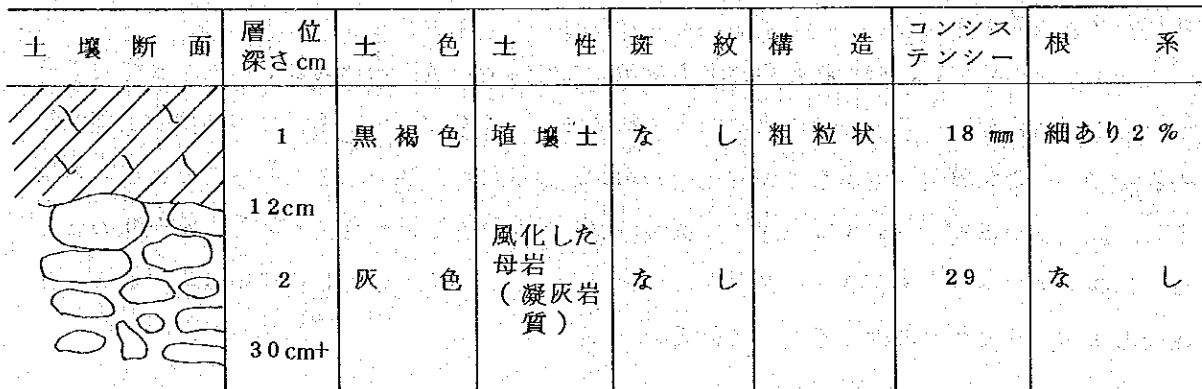 土壌断面 層位 深さcm 土色 土性 斑紋 構造 コンシステンシー 根系
1 黒褐色 埴壌土 なし 粗粒状 18㎜ 細あり2%
12cm
2 灰色 風化した母岩(凝灰岩質) なし 29 なし
30cm+